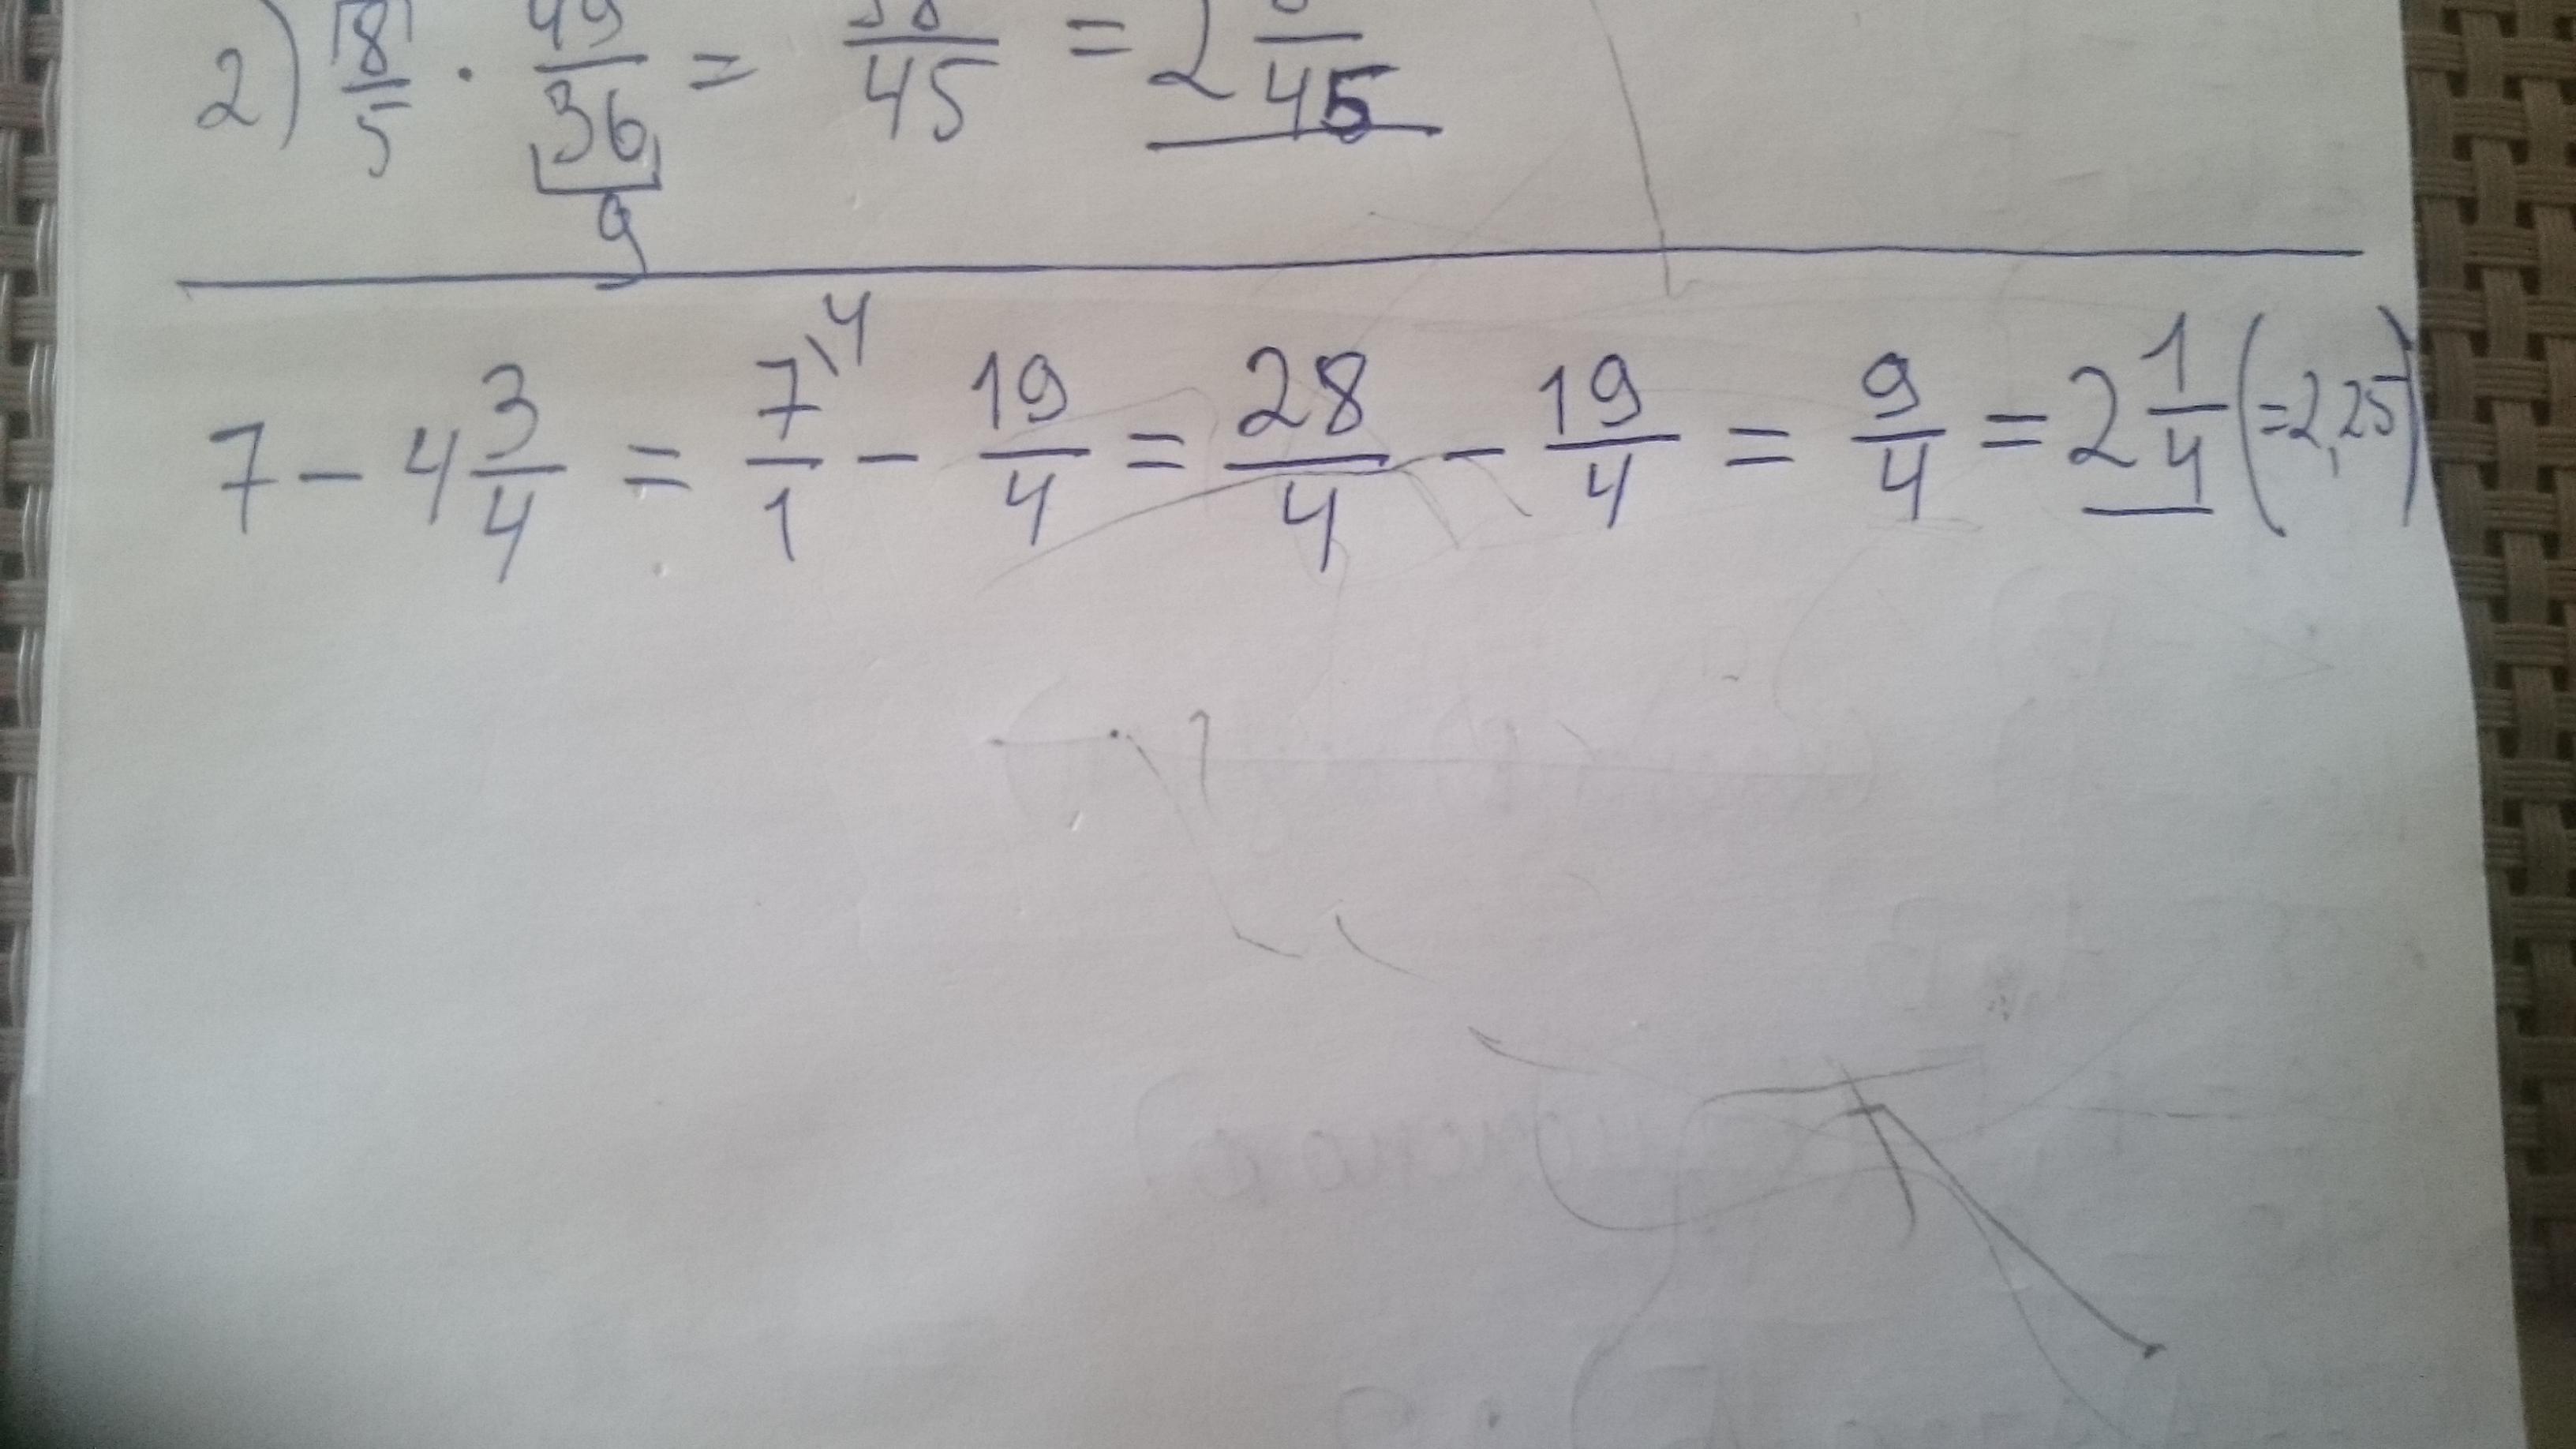 2) 8/5 · 49/36 = 98/45 = 2 8/45
9
7 - 4 3/4 = 7\4/1 - 19/4 = 28/4 - 19/4 = 9/4 = 2 1/4 (=2,25)